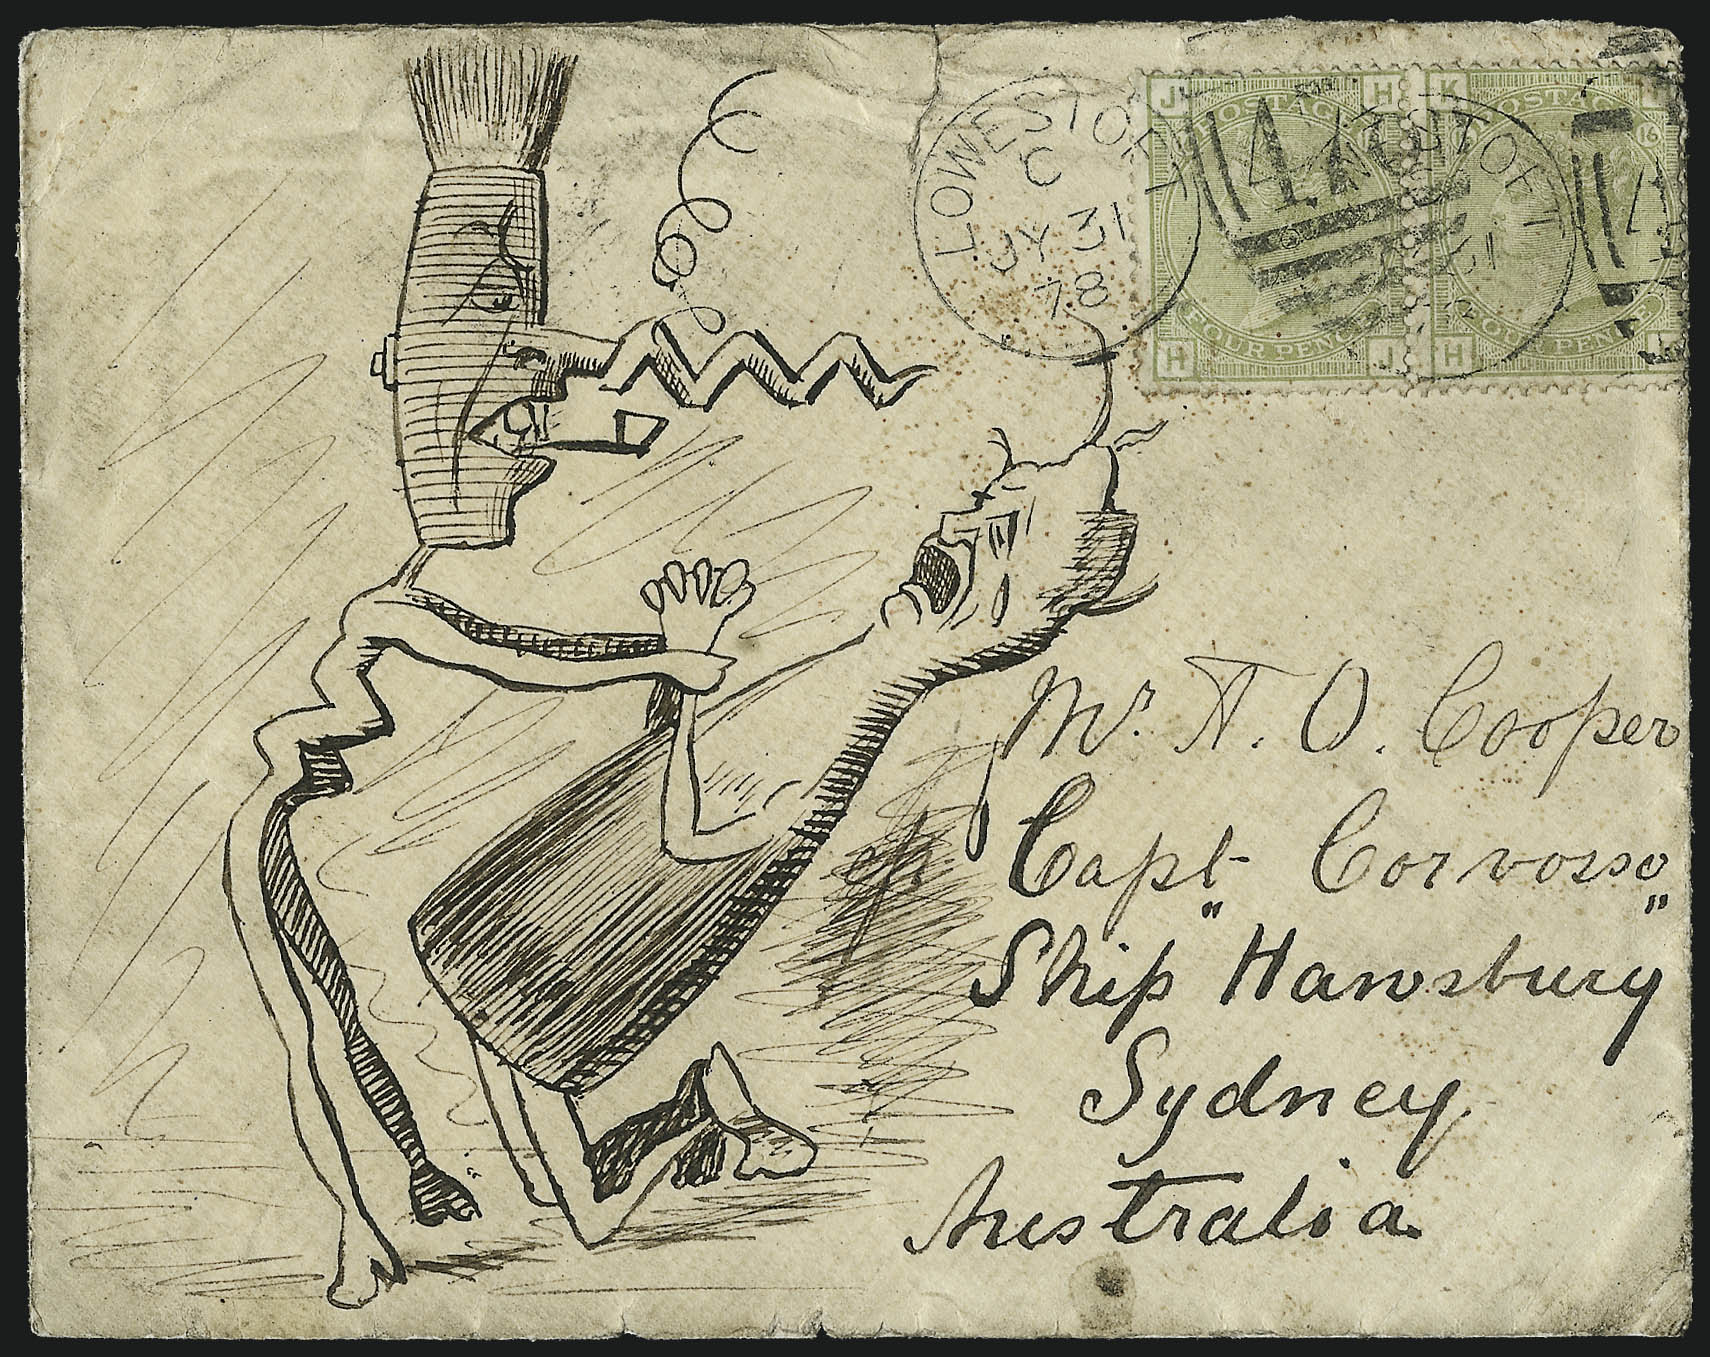 LOWESTOFT
C
JY 31
78
J H
POSTAGE
FOUR PENCE
H J
K
POSTAGE
16
FOUR PENCE
H
Mr. A. O. Cooper
Capt Corvosso
Ship "Hawsbury"
Sydney
Australia